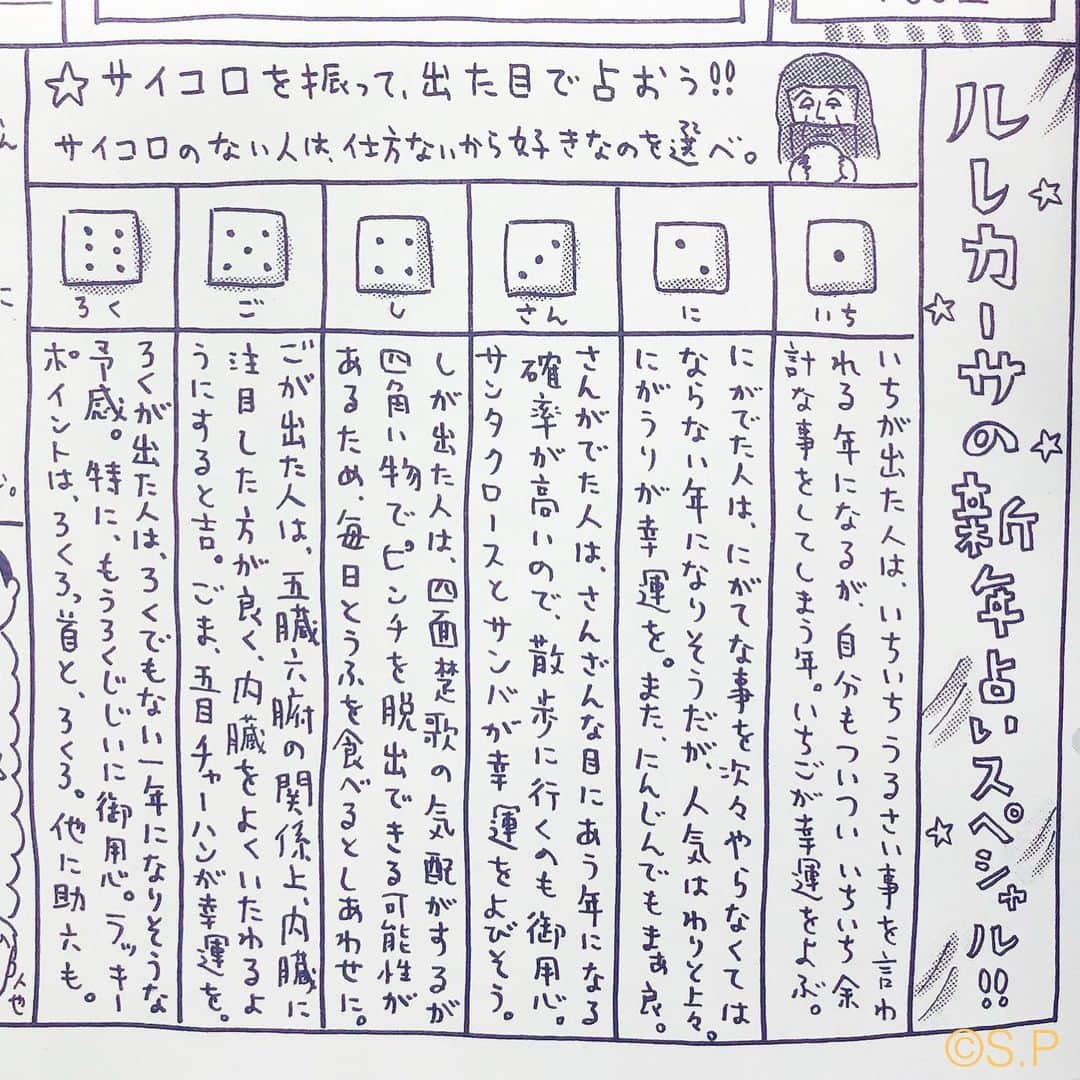 ルレカーサの新年占いスペシャル!!
☆サイコロを振って、出た目で占おう!!
サイコロのない人は、仕方ないから好きなのを選べ。
いち
いちが出た人は、いちいちうるさい事を言わ
れる年になるが、自分もついつい いちいち余
計な事をしてしまう年。いちごが幸運をよぶ。
に
にがでた人は、にがてな事を次々やらなくては
ならない年になりそうだが、人気はわりと上々。
にがうりが幸運を。また、にんじんでもまぁ良。
さん
さんがでた人は、さんざんな目にあう年になる
確率が高いので、散歩に行くのも御用心。
サンタクロースとサンバが幸運をよびそう。
し
しが出た人は、四面楚歌の気配がするが
四角い物でピンチを脱出できる可能性が
あるため、毎日とうふを食べるとしあわせに。
ご
ごが出た人は、五臓六腑の関係上、内臓に
注目した方が良く、内臓をよくいたわるよ
うにすると吉。ごま、五目チャーハンが幸運を。
ろく
ろくが出た人は、ろくでもない一年になりそうな
予感。特に、もうろくじじいに御用心。ラッキー
ポイントは、ろくろっ首と、ろくろ。他に助六も。
©S.P